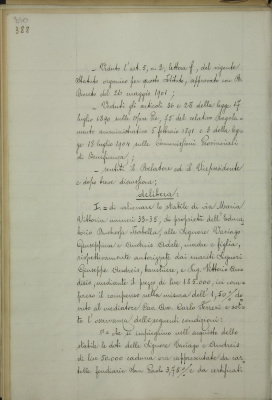 388
— Veduto l'art. 5, n. 2, lettera f, del vigente
Statuto organico per questo Istituto, approvato con R.
Decreto del 26 maggio 1901;
— Veduti gli articoli 36 e 28 della legge 17
luglio 1890 sulle Opere Pie, 75 del relativo Regola-
mento amministrativo 5 febbraio 1891 e 5 della leg-
ge 18 luglio 1904 sulle Commissioni Provinciali
di Beneficenza;
— sentiti il Relatore ed il Vicepresidente
e dopo breve discussione;
delibera:
I.= di alienare lo stabile di via Maria
Vittoria numeri 33-35, di proprietà dell'Educa-
torio Duchessa Isabella, alle Signore Vaciago
Giuseppina e Audreis Adele, madre e figlia,
rispettivamente autorizzati dai mariti Signori
Giuseppe Audreis, banchiere, e Ing. Vittorio
mediante il prezzo di lire 185.000, in com-
preso il compenso nella misura dell'1,50 % do-
vuto al mediatore Cav. Avv. Carlo Ferreri e sot-
to l'osservanza delle seguenti condizioni:
1º= che si impieghino nell'acquisto dello
stabile le doti delle Signore Vaciago e Audreis
di lire 50.000 caduna ora rappresentate da car-
telle fondiarie San Paolo 3,75 % e da certificati